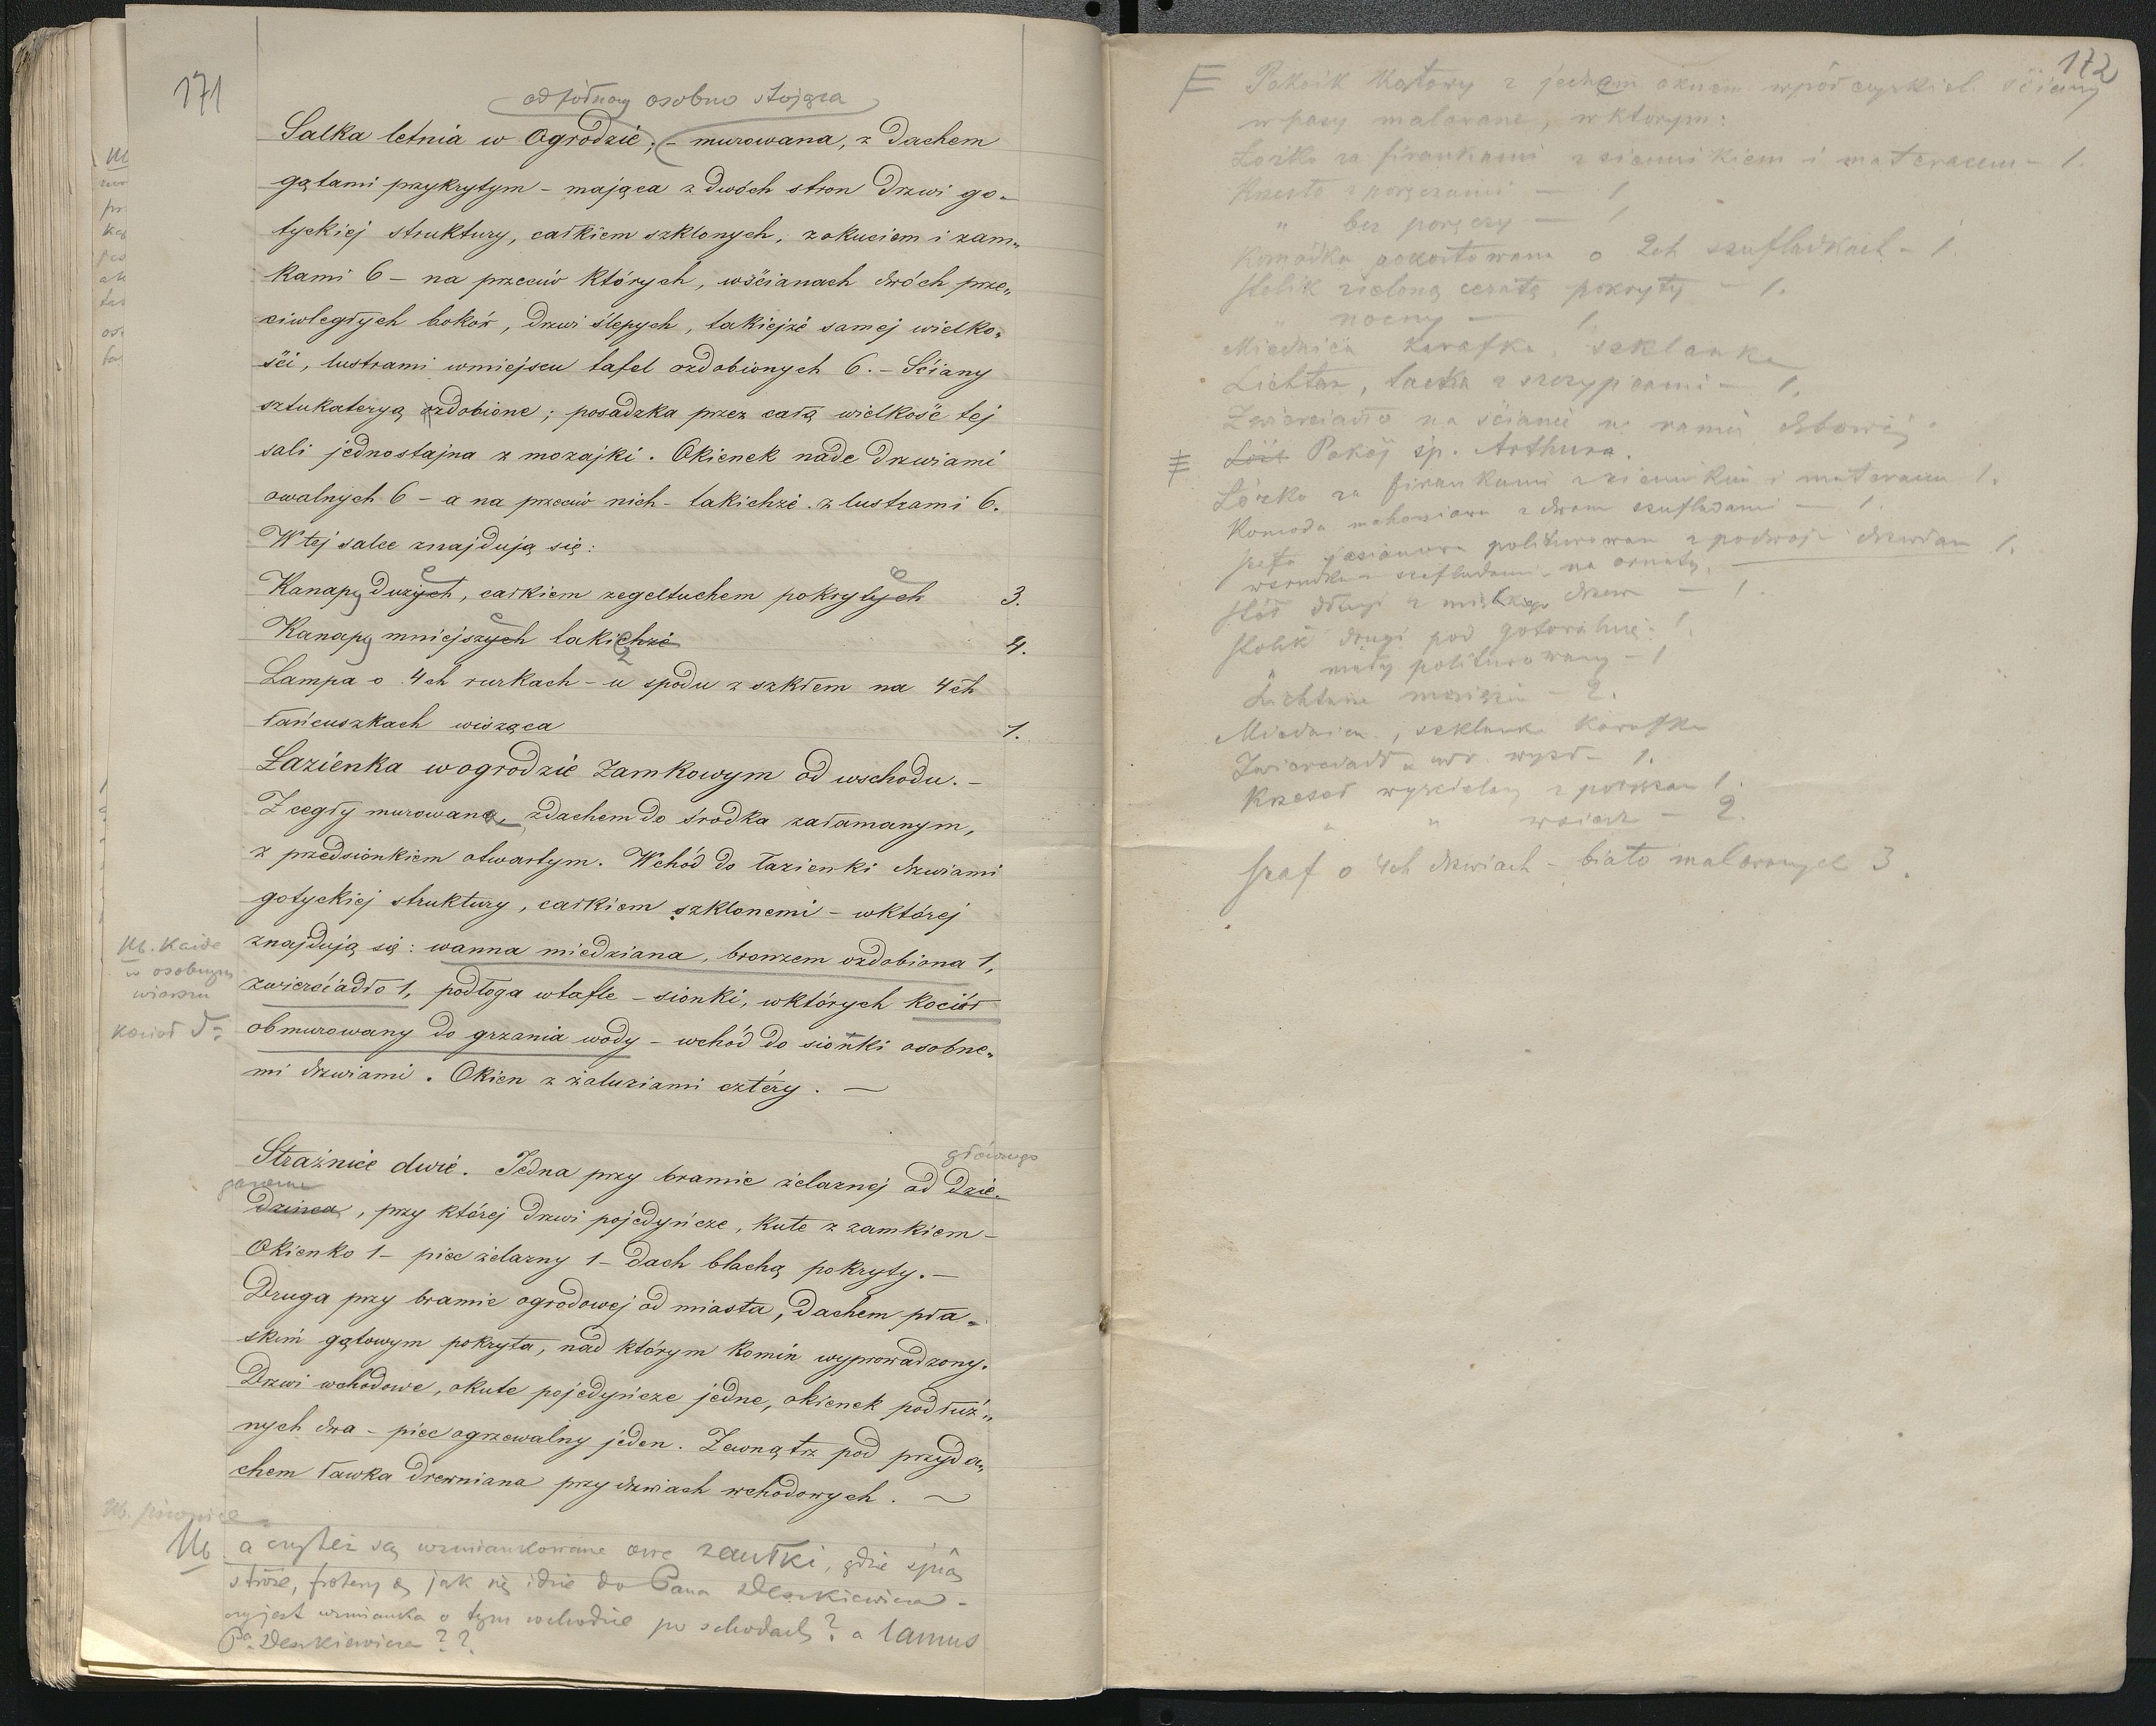 171
od północy osobno stojąca
Salka letnia w Ogrodzie; – murowana, z dachem
gątami przykrytym – mająca z dwóch stron drzwi go-
tyckiej struktury, całkiem szklonych, z okuciem i zam„
kami 6 – na przeciw których, w ścianach dwóch prze„
ciwległych boków, drzwi ślepych, takiejże samej wielko„
ści, lustrami w miejscu tafel ozdobionych 6. – Ściany
sztukateryą ozdobione; posadzka przez całą wielkość tej
sali jednostajna z mozajki. Okienek nade drzwiami
owalnych 6 – a na przeciw nich – takichże z lustrami 6.
W tej salce znajdują się:
Kanapy dużych, całkiem żegeltuchem pokrytych 3.
Kanapy mniejszych takichże 4.
Lampa o 4ch rurkach – u spodu z szkłem na 4ch
łańcuszkach wisząca 1.
Łazienka w ogrodzie Zamkowym od wschodu. –
Z cegły murowana, z dachem do środka załamanym,
z przedsionkiem otwartym. Wchód do łazienki drzwiami
gotyckiej struktury, całkiem szklonemi – w której
znajdują się: wanna miedziana, bronzem ozdobiona 1,
zwierciadło 1, podłoga w tafle – sionki, w których kocioł
obmurowany do grzania wody – wchód do sionki osobne„
mi drzwiami. Okien z żaluziami cztéry. –
Nb. Każde
w osobnym
wierszu
kocioł d°
Strażnice dwie. Jedna przy bramie żelaznej od dzie-
głównego
dzińca, przy której drzwi pojedyńcze, kute z zamkiem –
Okienko 1 – piec żelazny 1 – dach blachą pokryty. –
Druga przy bramie ogrodowej od miasta, dachem pła„
skim gątowym pokryta, nad którym komin wyprowadzony.
Drzwi wchodowe, okute pojedyńcze jedne, okienek podłuż„
nych dwa – piec ogrzewalny jeden. Zewnątrz pod przyda„
chem ławka drewniana przy drzwiach wchodowych. –
Nb. piwnice
Nb a czyteż są wzmiankowane owe zaułki, gdzie śpią
stróże, frotery jak się idzie do Pana Deszkiewicza –
czy jest wzmianka o tym wchodzie po schodach? a lamus
Pa Deszkiewicza??
172
Pokoik Kątowy z jednem oknem
w pasy malowane, w ktorym:
Łóżko za firankami z siennikiem i materacem – 1.
Krzesło z poręczami – 1
" bez poręczy – 1
Komódka pokostowana o 2ch szufladkach – 1.
Stolik zieloną ceratą pokryty – 1.
" nocny – 1
Miednica karafka, szklanka
Lichtarz, tacka z szczypcami – 1.
Zwierciadło na ścianie w ramie dębowej
Pokój śp. Arthura.
Łóżko za firankami z siennikiem i materacem 1.
Komoda mahoniowa z dwoma szufladami – 1.
Szafa jesionowa politurowana z podwoj. drzwiam 1.
w środku z szufladami na ornaty. –
Stół długi z miękkiego drzewa – 1.
Stolik drugi pod gotowalnię – 1.
" mały politurowany – 1
Lichtarze mosiężne – 2.
Miednica, szklanka Karafka
Krzeseł wyścielany z poręczam 1.
" " – 2.
Szaf o 4ch drzwiach – biało malowanych 3.